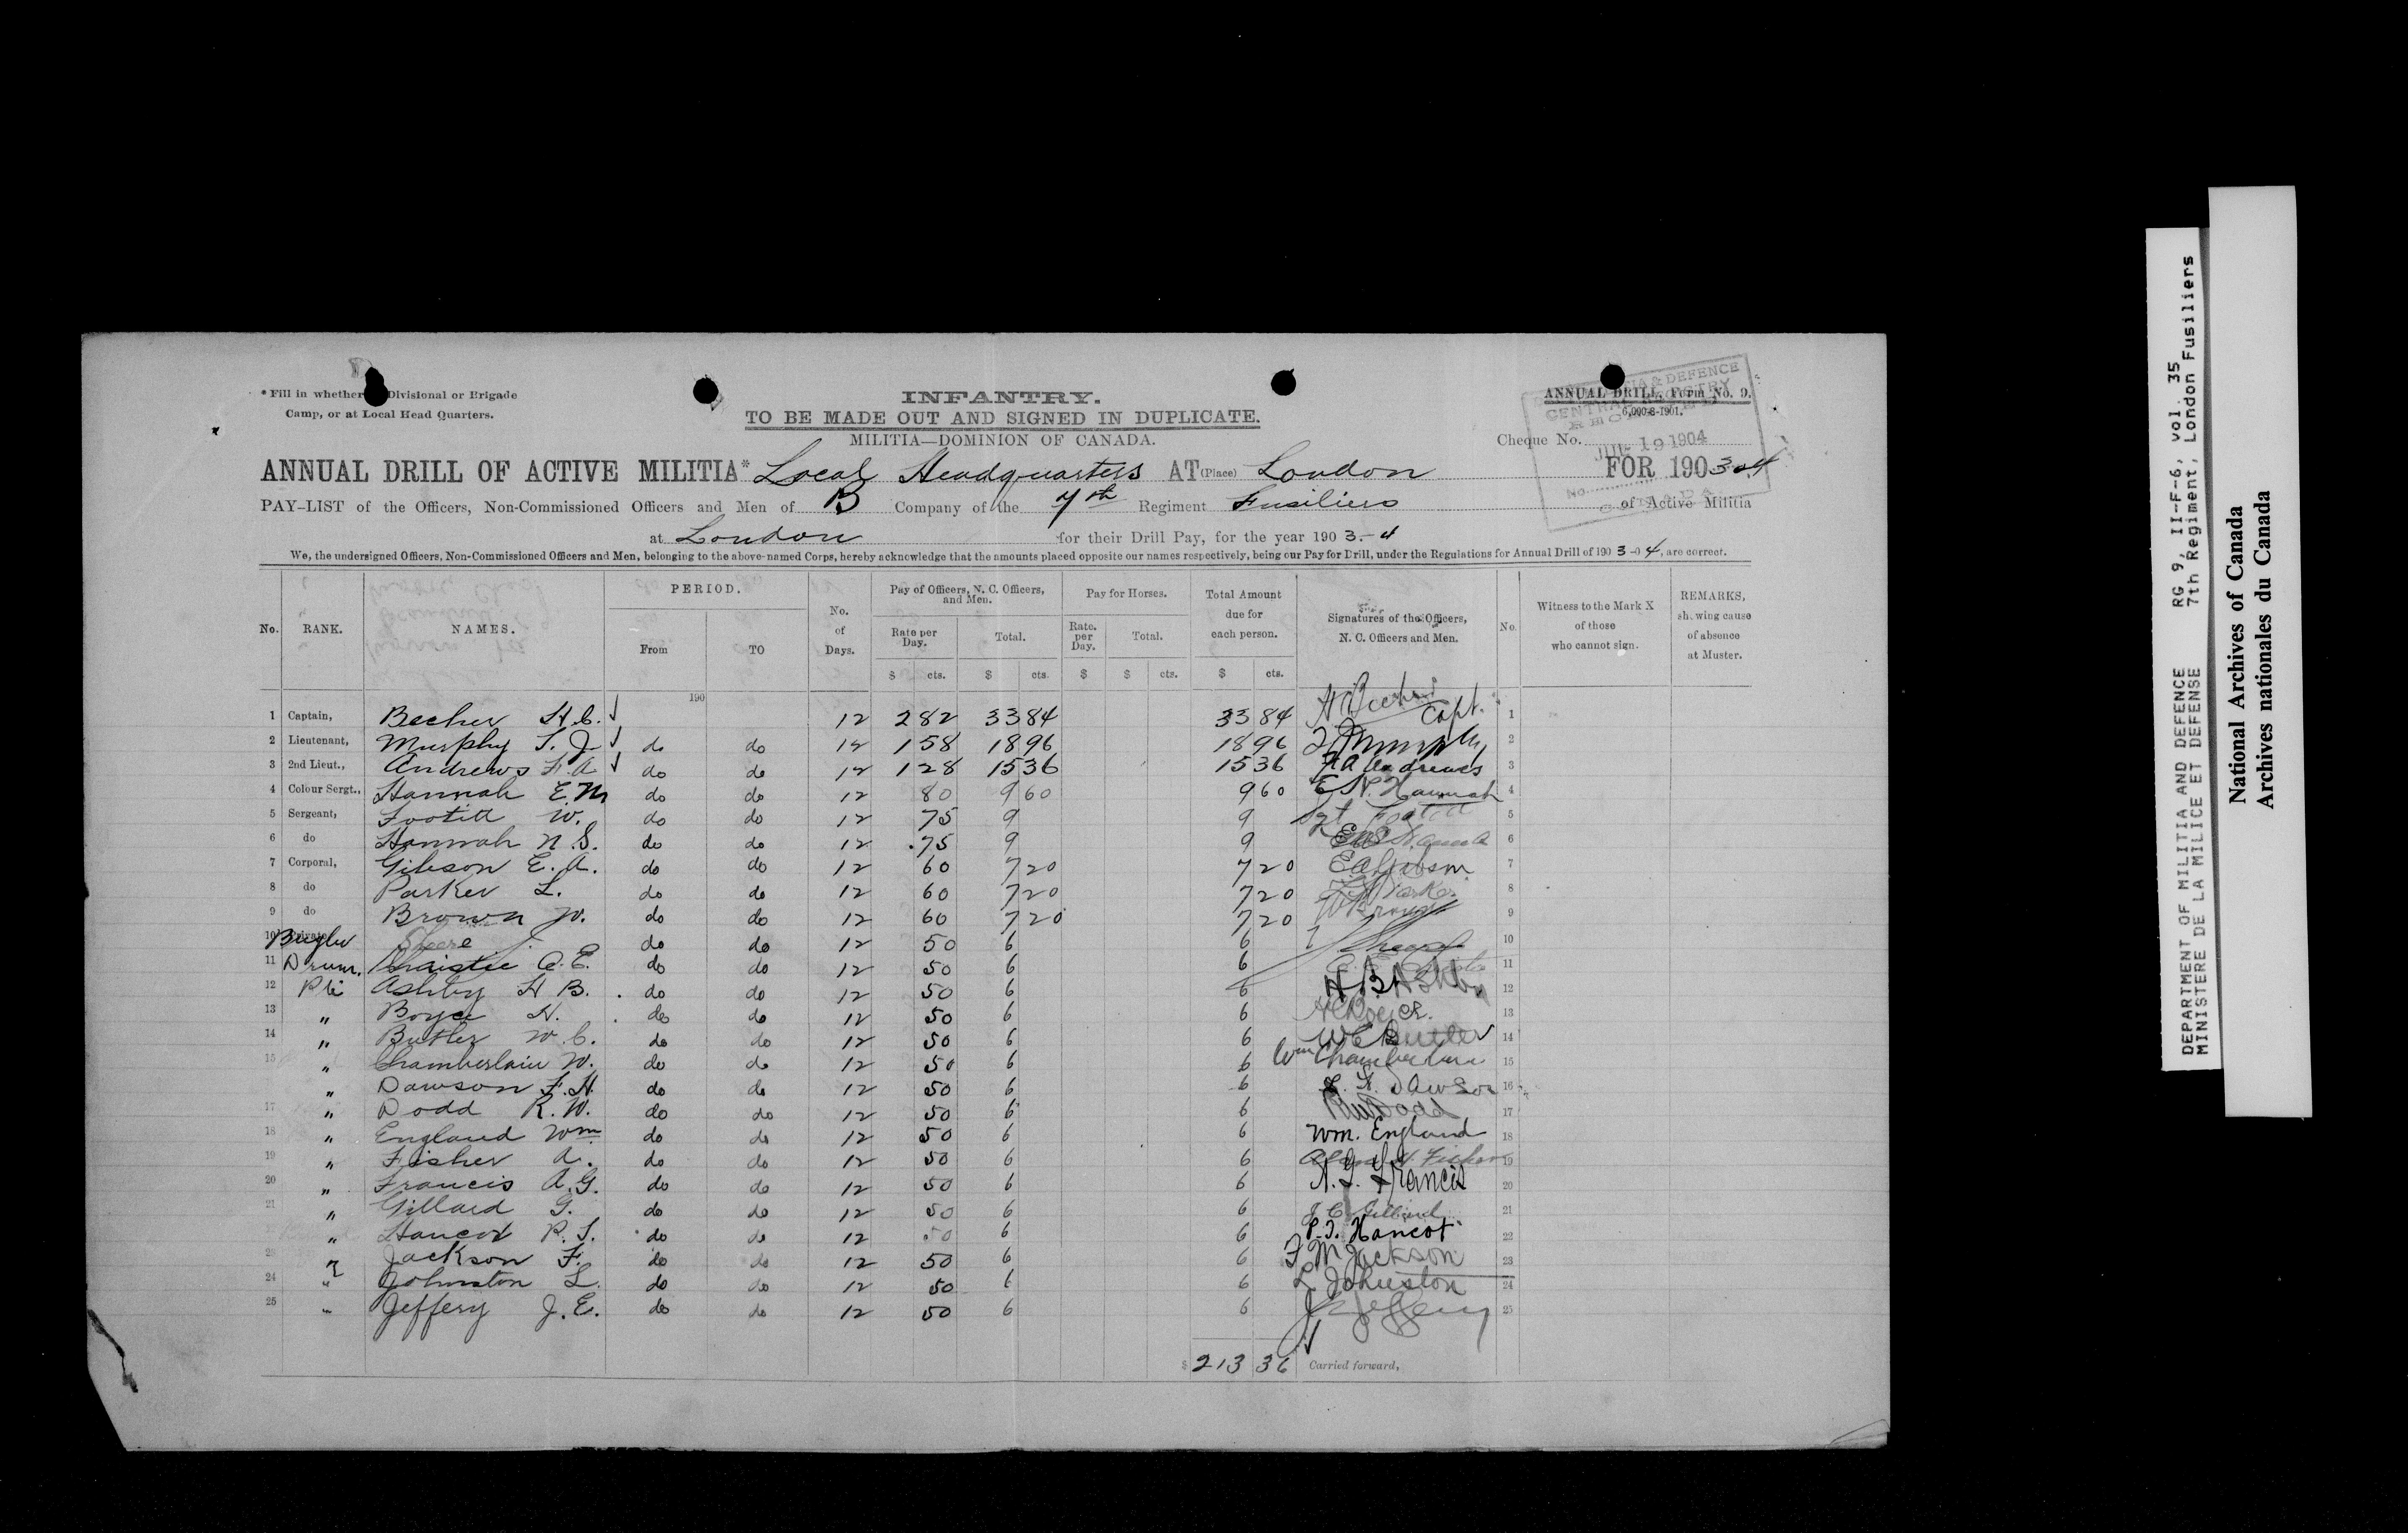 * Fill in whether Divisional or Brigade
Camp, or at Local Head Quarters.
INFANTRY.
TO BE MADE OUT AND SIGNED IN DUPLICATE.
MILITIA—DOMINION OF CANADA.
ANNUAL DRILL, Form No. 9.
6,000-8-1901.
Cheque No.
JUL 19 1904
ANNUAL DRILL OF ACTIVE MILITIA* Local Headquarters AT (Place) London FOR 1903-04
PAY-LIST of the Officers, Non-Commissioned Officers and Men of B Company of the 7th Regiment Fusiliers of Active Militia
at London for their Drill Pay, for the year 1903-4
We, the undersigned Officers, Non-Commissioned Officers and Men, belonging to the above-named Corps, hereby acknowledge that the amounts placed opposite our names respectively, being our Pay for Drill, under the Regulations for Annual Drill of 1903-04, are correct.
No. RANK. NAMES. PERIOD. From TO No. of Days. Pay of Officers, N. C. Officers, and Men. Rate per Day. Total. Pay for Horses. Rate. per Day. Total. Total Amount due for each person. Signatures of the Officers, N. C. Officers and Men. No. Witness to the Mark X of those who cannot sign. REMARKS, showing cause of absence at Muster.
$ cts. $ cts. $ $ cts. $ cts.
190
1 Captain, Becher H.C. 12 2 82 33 84 33 84 H Becher Capt. 1
2 Lieutenant, Murphy T. J. do do 12 1 58 18 96 18 96 T J Murphy 2
3 2nd Lieut., Andrews F. A do do 12 1 28 15 36 15 36 F A Andrews 3
4 Colour Sergt., Hannah E. M do do 12 80 9 60 9 60 Hannah 4
5 Sergeant, Footitt W. do do 12 75 9 9 Sgt Footitt 5
6 do Hannah N. S. do do 12 .75 9 9 6
7 Corporal, Gibson E. A. do do 12 60 7 20 7 20 E A Gibson 7
8 do Parker L. do do 12 60 7 20 7 20 Parker 8
9 do Brown W. do do 12 60 7 20 7 20 W Brown 9
10 Bugler do do 12 50 6 6 10
11 Drum. Christie A. E. do do 12 50 6 6 11
12 Pte Ashby H B. do do 12 50 6 6 H B Ashby 12
13 " Boyce H. do do 12 50 6 6 13
14 " Butler W. C. do do 12 50 6 6 W C Butler 14
15 " Chamberlain W. do do 12 50 6 6 Wm Chamberlain 15
" Dawson F. H. do do 12 50 6 6 F. H. Dawson 16
17 " Dodd R. W. do do 12 50 6 6 R W Dodd 17
18 " England Wm do do 12 50 6 6 Wm. England 18
19 " Fisher A. do do 12 50 6 6 Fisher 19
20 " Francis A. G. do do 12 50 6 6 A. G. Francis 20
21 " Gillard G. do do 12 50 6 6 Gillard 21
" Hancot P. T. do do 12 50 6 6 P. T. Hancot 22
23 " Jackson F. do do 12 50 6 6 F M Jackson 23
24 " Johnston L. do do 12 50 6 6 L Johnston 24
25 " Jeffery J. E. do do 12 50 6 6 J E Jeffery 25
$ 213 36 Carried forward,
DEPARTMENT OF MILITIA AND DEFENCE RG 9, II-F-6, vol. 35
MINISTERE DE LA MILICE ET DEFENSE 7th Regiment, London Fusiliers
National Archives of Canada
Archives nationales du Canada